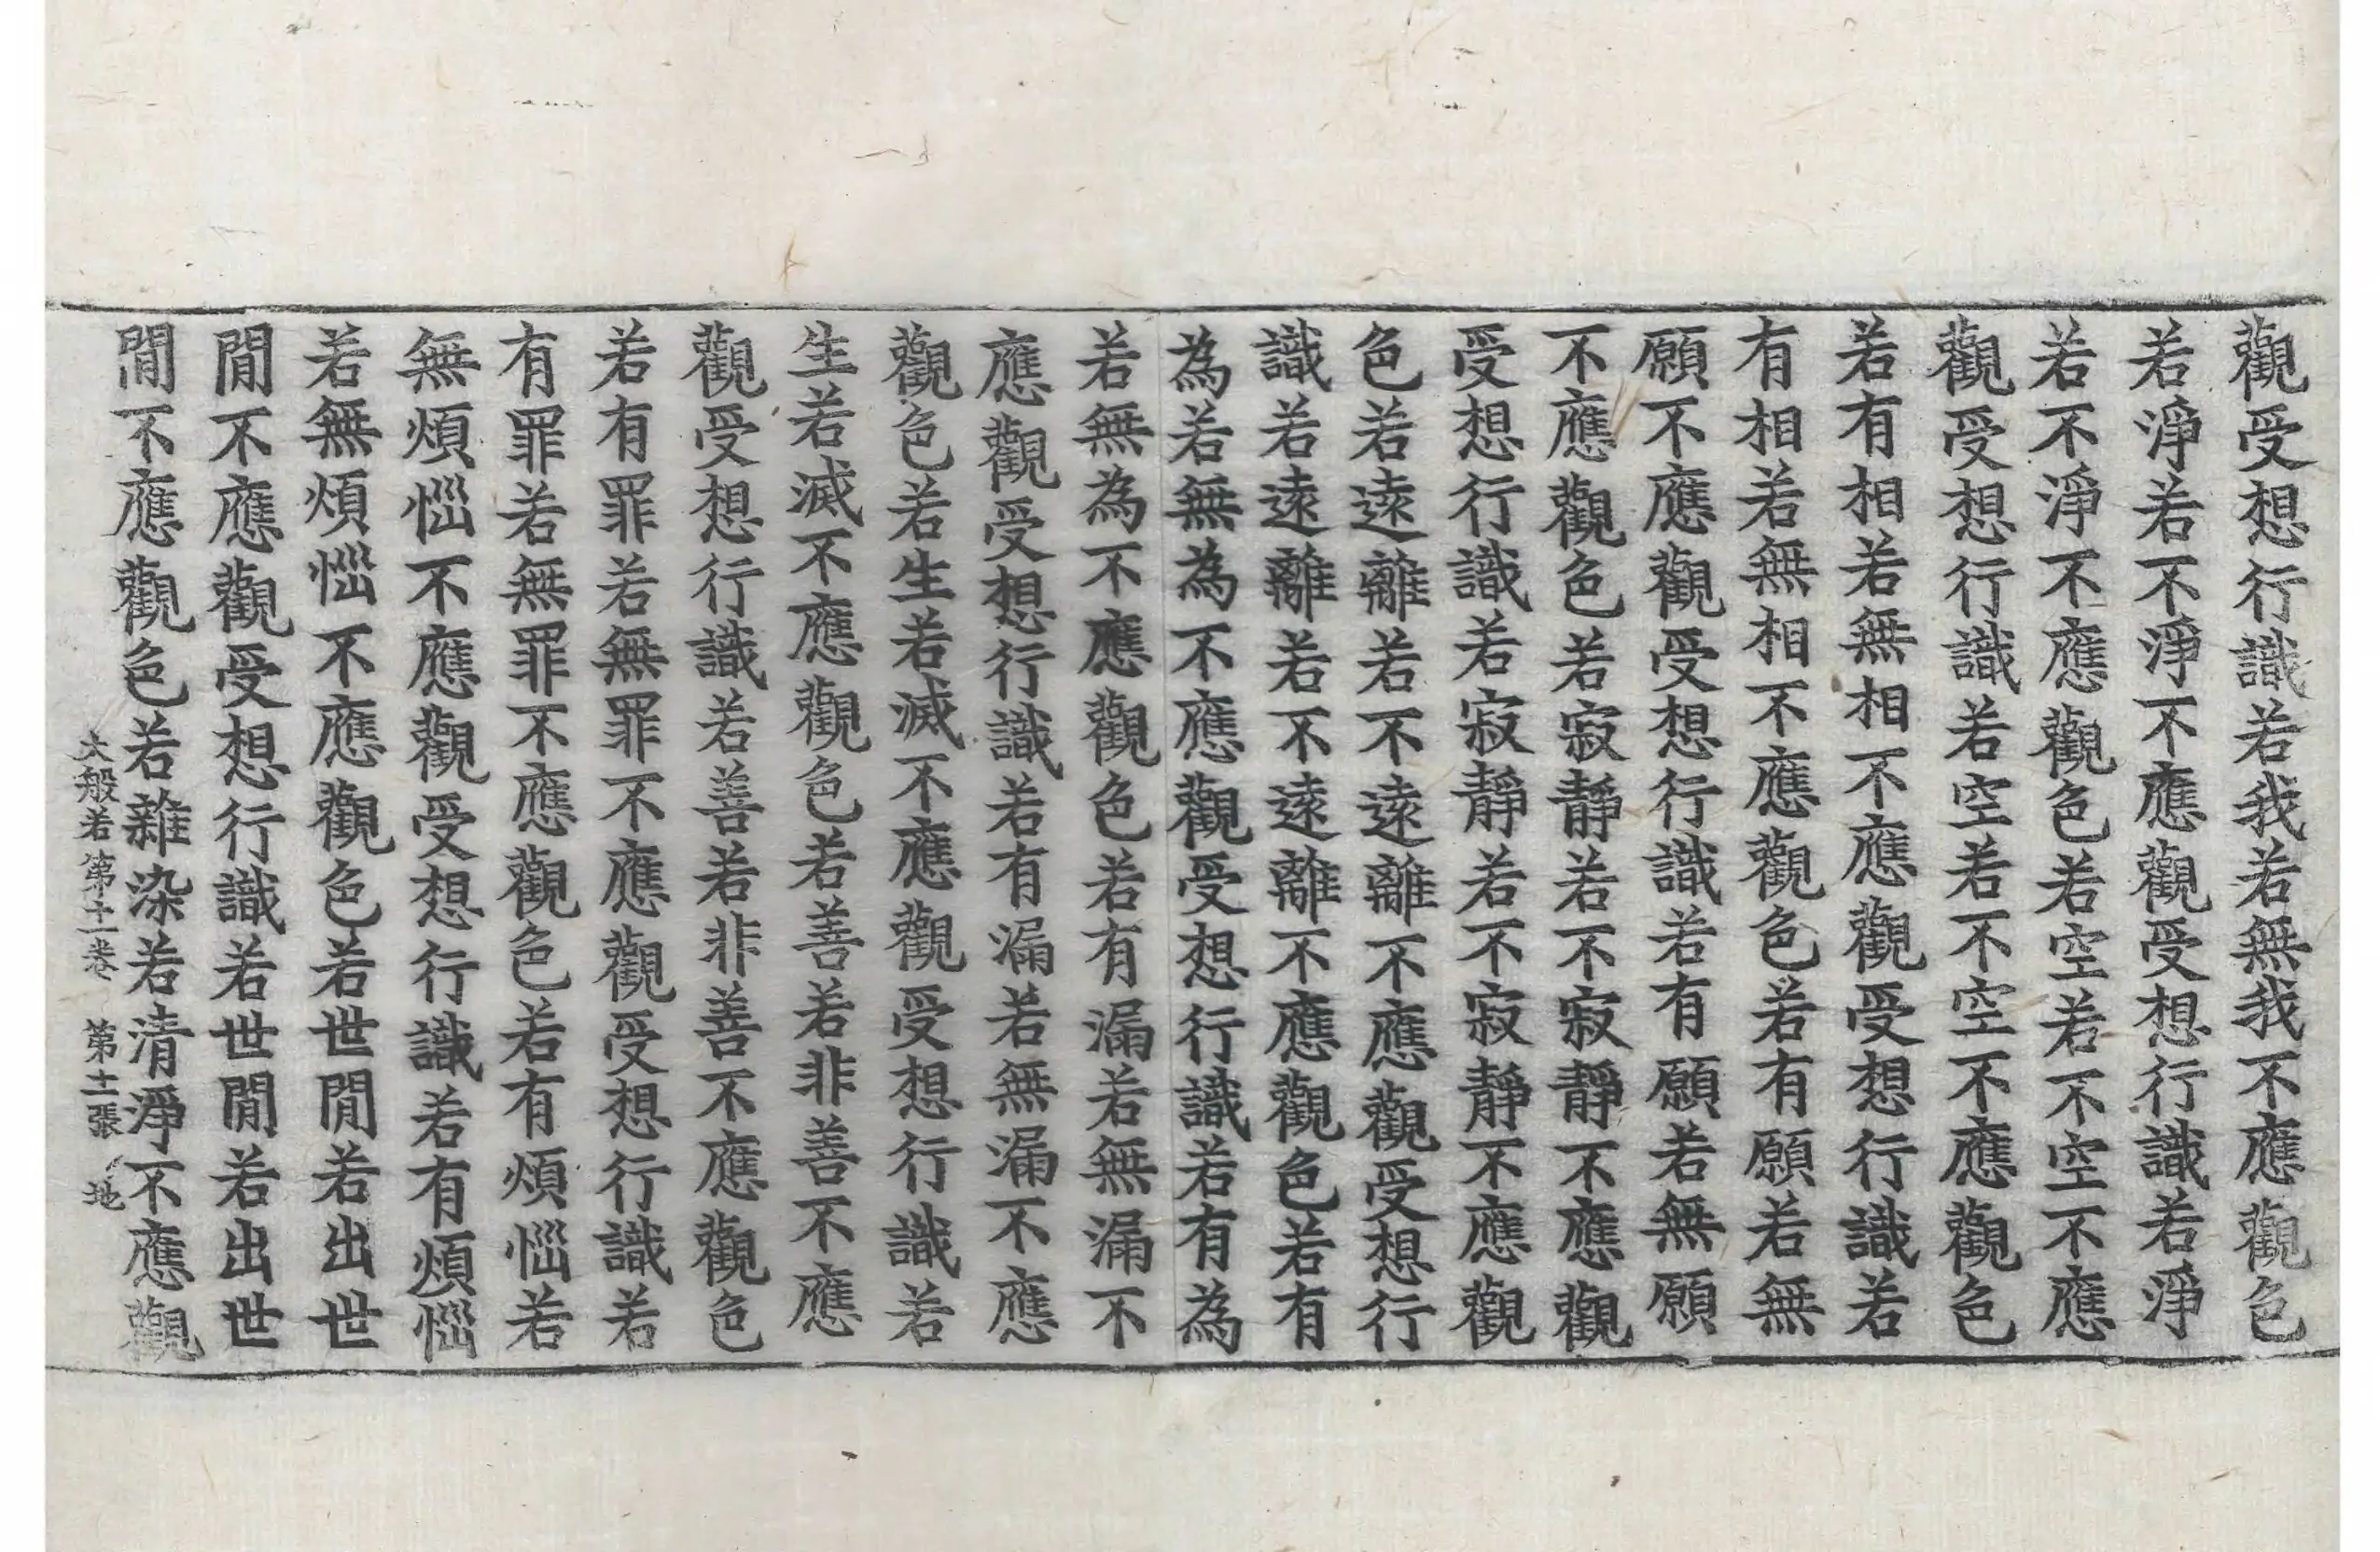 觀受想行識若我若無我不應觀色
若淨若不淨不應觀受想行識若淨
若不淨不應觀色若空若不空不應
觀受想行識若空若不空不應觀色
若有相若無相不應觀受想行識若
有相若無相不應觀色若有願若無
願不應觀受想行識若有願若無願
不應觀色若寂靜若不寂靜不應觀
受想行識若寂靜若不寂靜不應觀
色若遠離若不遠離不應觀受想行
識若遠離若不遠離不應觀色若有
為若無為不應觀受想行識若有為
若無為不應觀色若有漏若無漏不
應觀受想行識若有漏若無漏不應
觀色若生若滅不應觀受想行識若
生若滅不應觀色若善若非善不應
觀受想行識若善若非善不應觀色
若有罪若無罪不應觀受想行識若
有罪若無罪不應觀色若有煩惱若
無煩惱不應觀受想行識若有煩惱
若無煩惱不應觀色若世間若出世
間不應觀受想行識若世間若出世
間不應觀色若雜染若清淨不應觀
大般若第十二卷 第十二張 地